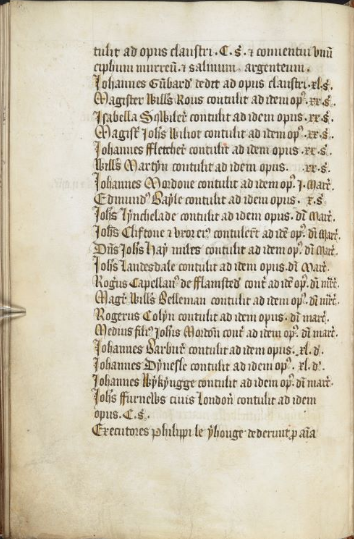 tulit ad opus claustri . C . s̃ . ⁊ conuentui vnũ
ciphum murreũ . ⁊ salinum . argenteum .
Johannes dedit ad opus claustri . xl . s̃ .
Magister Will̃s Rous contulit ad idem opꝰ . xx . s̃ .
Isabella Sqwiler contulit ad idem opus . xx . s̃ .
Magist̃ Joh̃s contulit ad idem opꝰ . xx . s̃ .
Johannes ffletcher contulit ad idem opus . xx . s̃ .
Will̃s Martyn contulit ad idem opus . xx . s̃ .
Johannes Mordone contulit ad idem opꝰ . j . marc̃ .
Edmundꝰ Bayle contulit ad idem opus . x . s̃
Joh̃s Tynchelade contulit ad idem opus . dĩ marc̃ .
Joh̃s Cliftone ⁊ vxor eiꝰ contuler̃t ad idẽ opꝰ . dĩ marc̃ .
Dñs Joh̃s Hay miles contulit ad idem opꝰ . dĩ marc̃ .
Joh̃s Landesdale contulit ad idem opus . dĩ marc̃ .
Rog̃us Capellanꝰ de fflamsted cont̃ ad idẽ opꝰ . dĩ mar̃c .
Mag̃r Will̃s Belleman contulit ad idem opꝰ . dĩ mar̃c .
Rogerus Colyn contulit ad idem opus . dĩ marc̃ .
filiꝰ Joh̃is Mordon cont̃ ad idem opꝰ . dĩ marc̃ .
Johannes Barbur̃ contulit ad idem opus . xl . d̃ .
Johannes Dynesle contulit ad idem opꝰ . xl . d̃ .
Johannes Wykyngge contulit ad idem opꝰ . dĩ marc̃ .
Joh̃s ffurnelbs ciuis london̄ contulit ad idem
opus . C . s̃ .
Executores Philippi le yhonge dederunt ꝓ aĩa